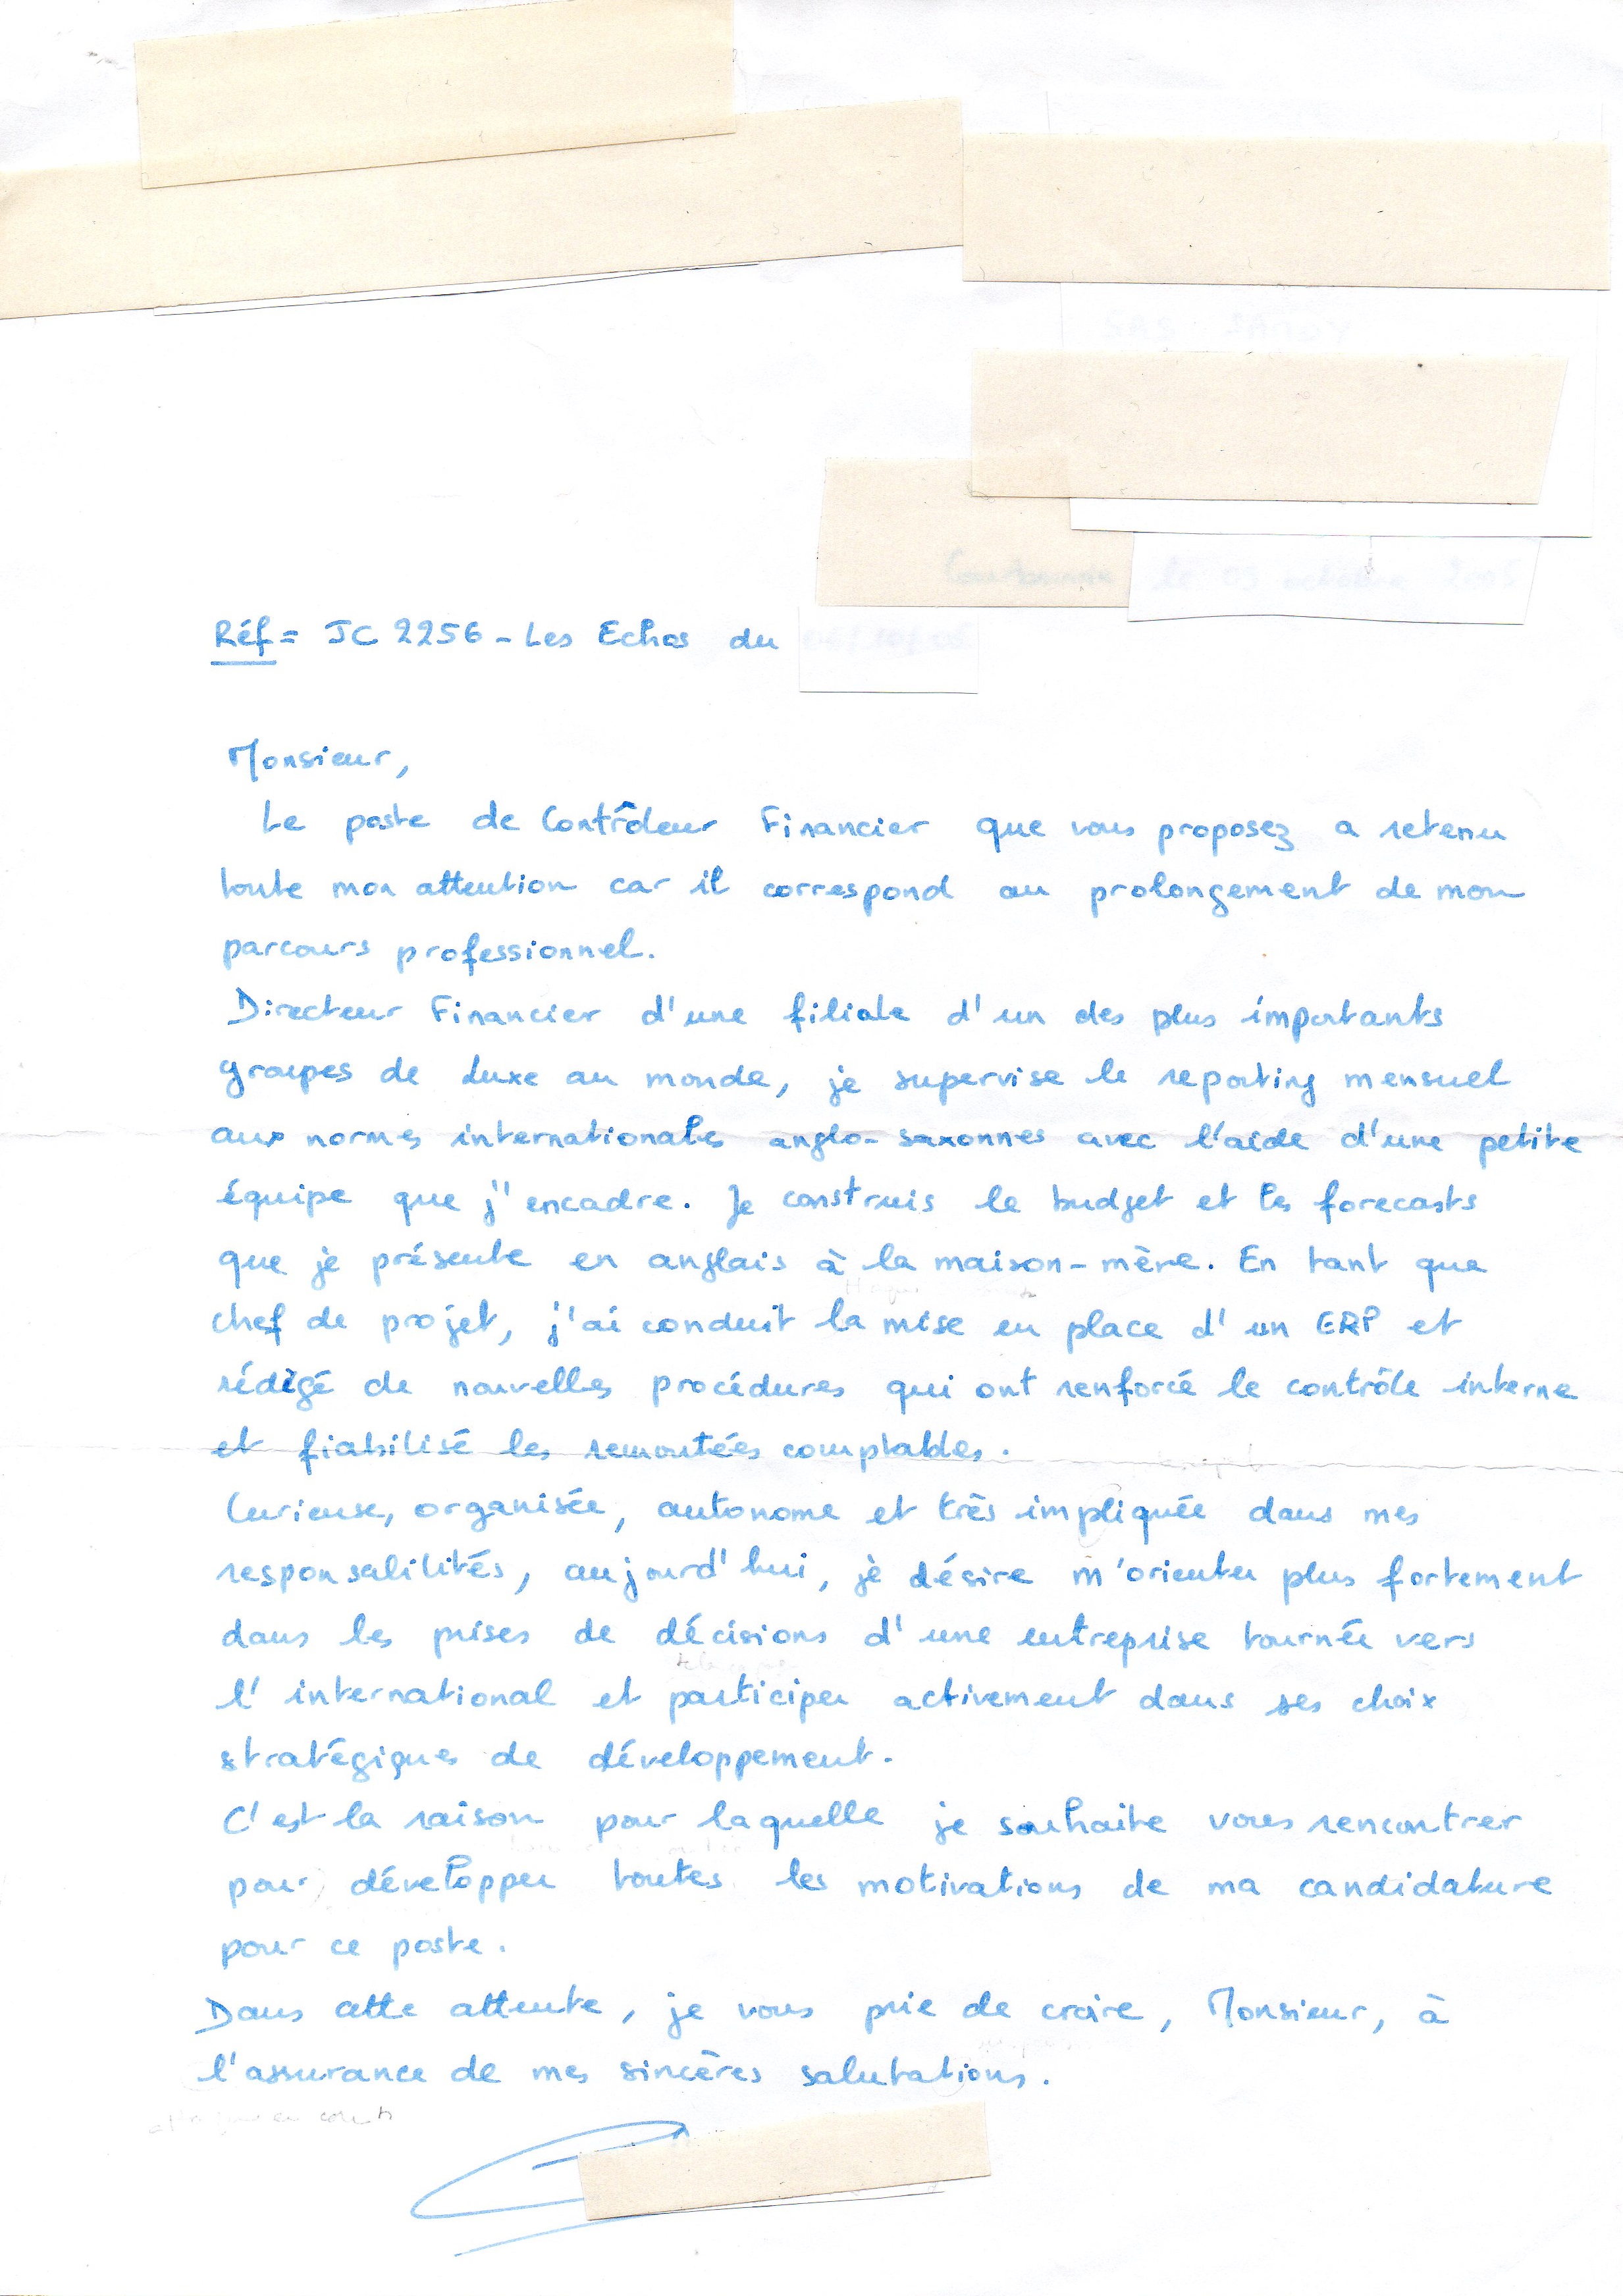 Réf = JC 2256 - Les Echos du
Monsieur,
Le poste de Contrôleur Financier que vous proposez a retenu
toute mon attention car il correspond au prolongement de mon
parcours professionnel.
Directeur Financier d'une filiale d'un des plus importants
groupes de luxe au monde, je supervise le reporting mensuel
aux normes internationales anglo-saxonnes avec l'aide d'une petite
équipe que j'encadre. Je construis le budget et les forecasts
que je présente en anglais à la maison-mère. En tant que
chef de projet, j'ai conduit la mise en place d'un ERP et
rédigé de nouvelles procédures qui ont renforcé le contrôle interne
et fiabilisé les remontées comptables.
Curieuse, organisée, autonome et très impliquée dans mes
responsalilités, aujourd'hui, je désire m'orienter plus fortement
dans les prises de décisions d'une entreprise tournée vers
l'international et participer activement dans ses choix
stratégiques de développement.
C'est la raison pour laquelle je souhaite vous rencontrer
pour développer toutes les motivations de ma candidature
pour ce poste.
Dans cette attente, je vous prie de croire, Monsieur, à
l'assurance de mes sincères salutations.